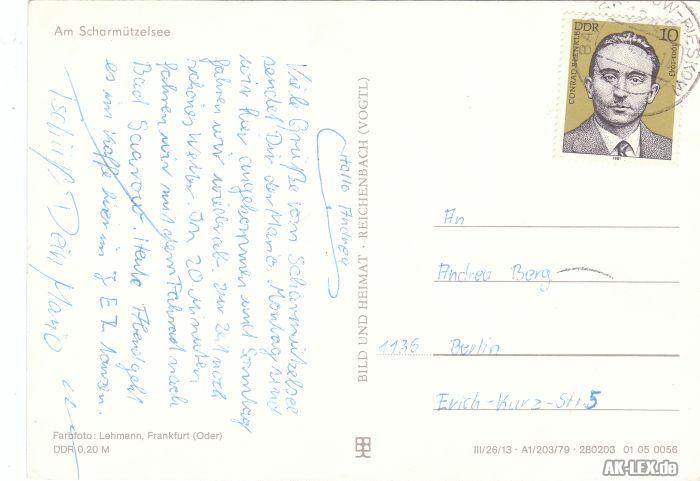 Am Scharmützelsee
Hallo Andrea
Viele Grüße vom Scharmützelsee
sendet Dir der Mario. Montag sind
wir hier angekommen und Sonntag
fahren wir wieder ab. Zur Zeit noch
schönes Wetter. In 20 Minuten
fahren wir mit dem Fahrrad nach
Bad Saarow. Heute Abend geht
es im hier im ZEL tanzen.
Tschüß Dein Mario
BILD UND HEIMAT · REICHENBACH (VOGTL)
CONRAD BLENKLE
DDR
10
1901-1943
1981
An
Andrea Berg
1136 Berlin
Erich-Kurz-Str. 5
Farbfoto: Lehmann, Frankfurt (Oder)
DDR 0,20 M
III/26/13 · A1/203/79 · 280203 01 05 0056
AK-LEX.de